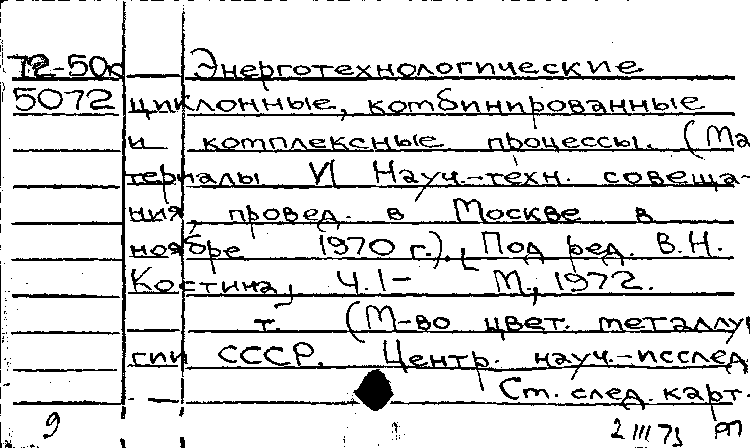 72-50с Энерготехнологические
5072 циклонные, комбинированные
и комплексные процессы. (Ма
териалы VI Науч.-техн. совеща-
ния, провед. в Москве в
ноябре 1970 г.). [Под ред. В.Н.
Костина] Ч.1- М., 1972.
т. (М-во цвет. металлур
гии СССР. Центр. науч.-исслед
Ст. след. карт.
9 2 III 73 РП